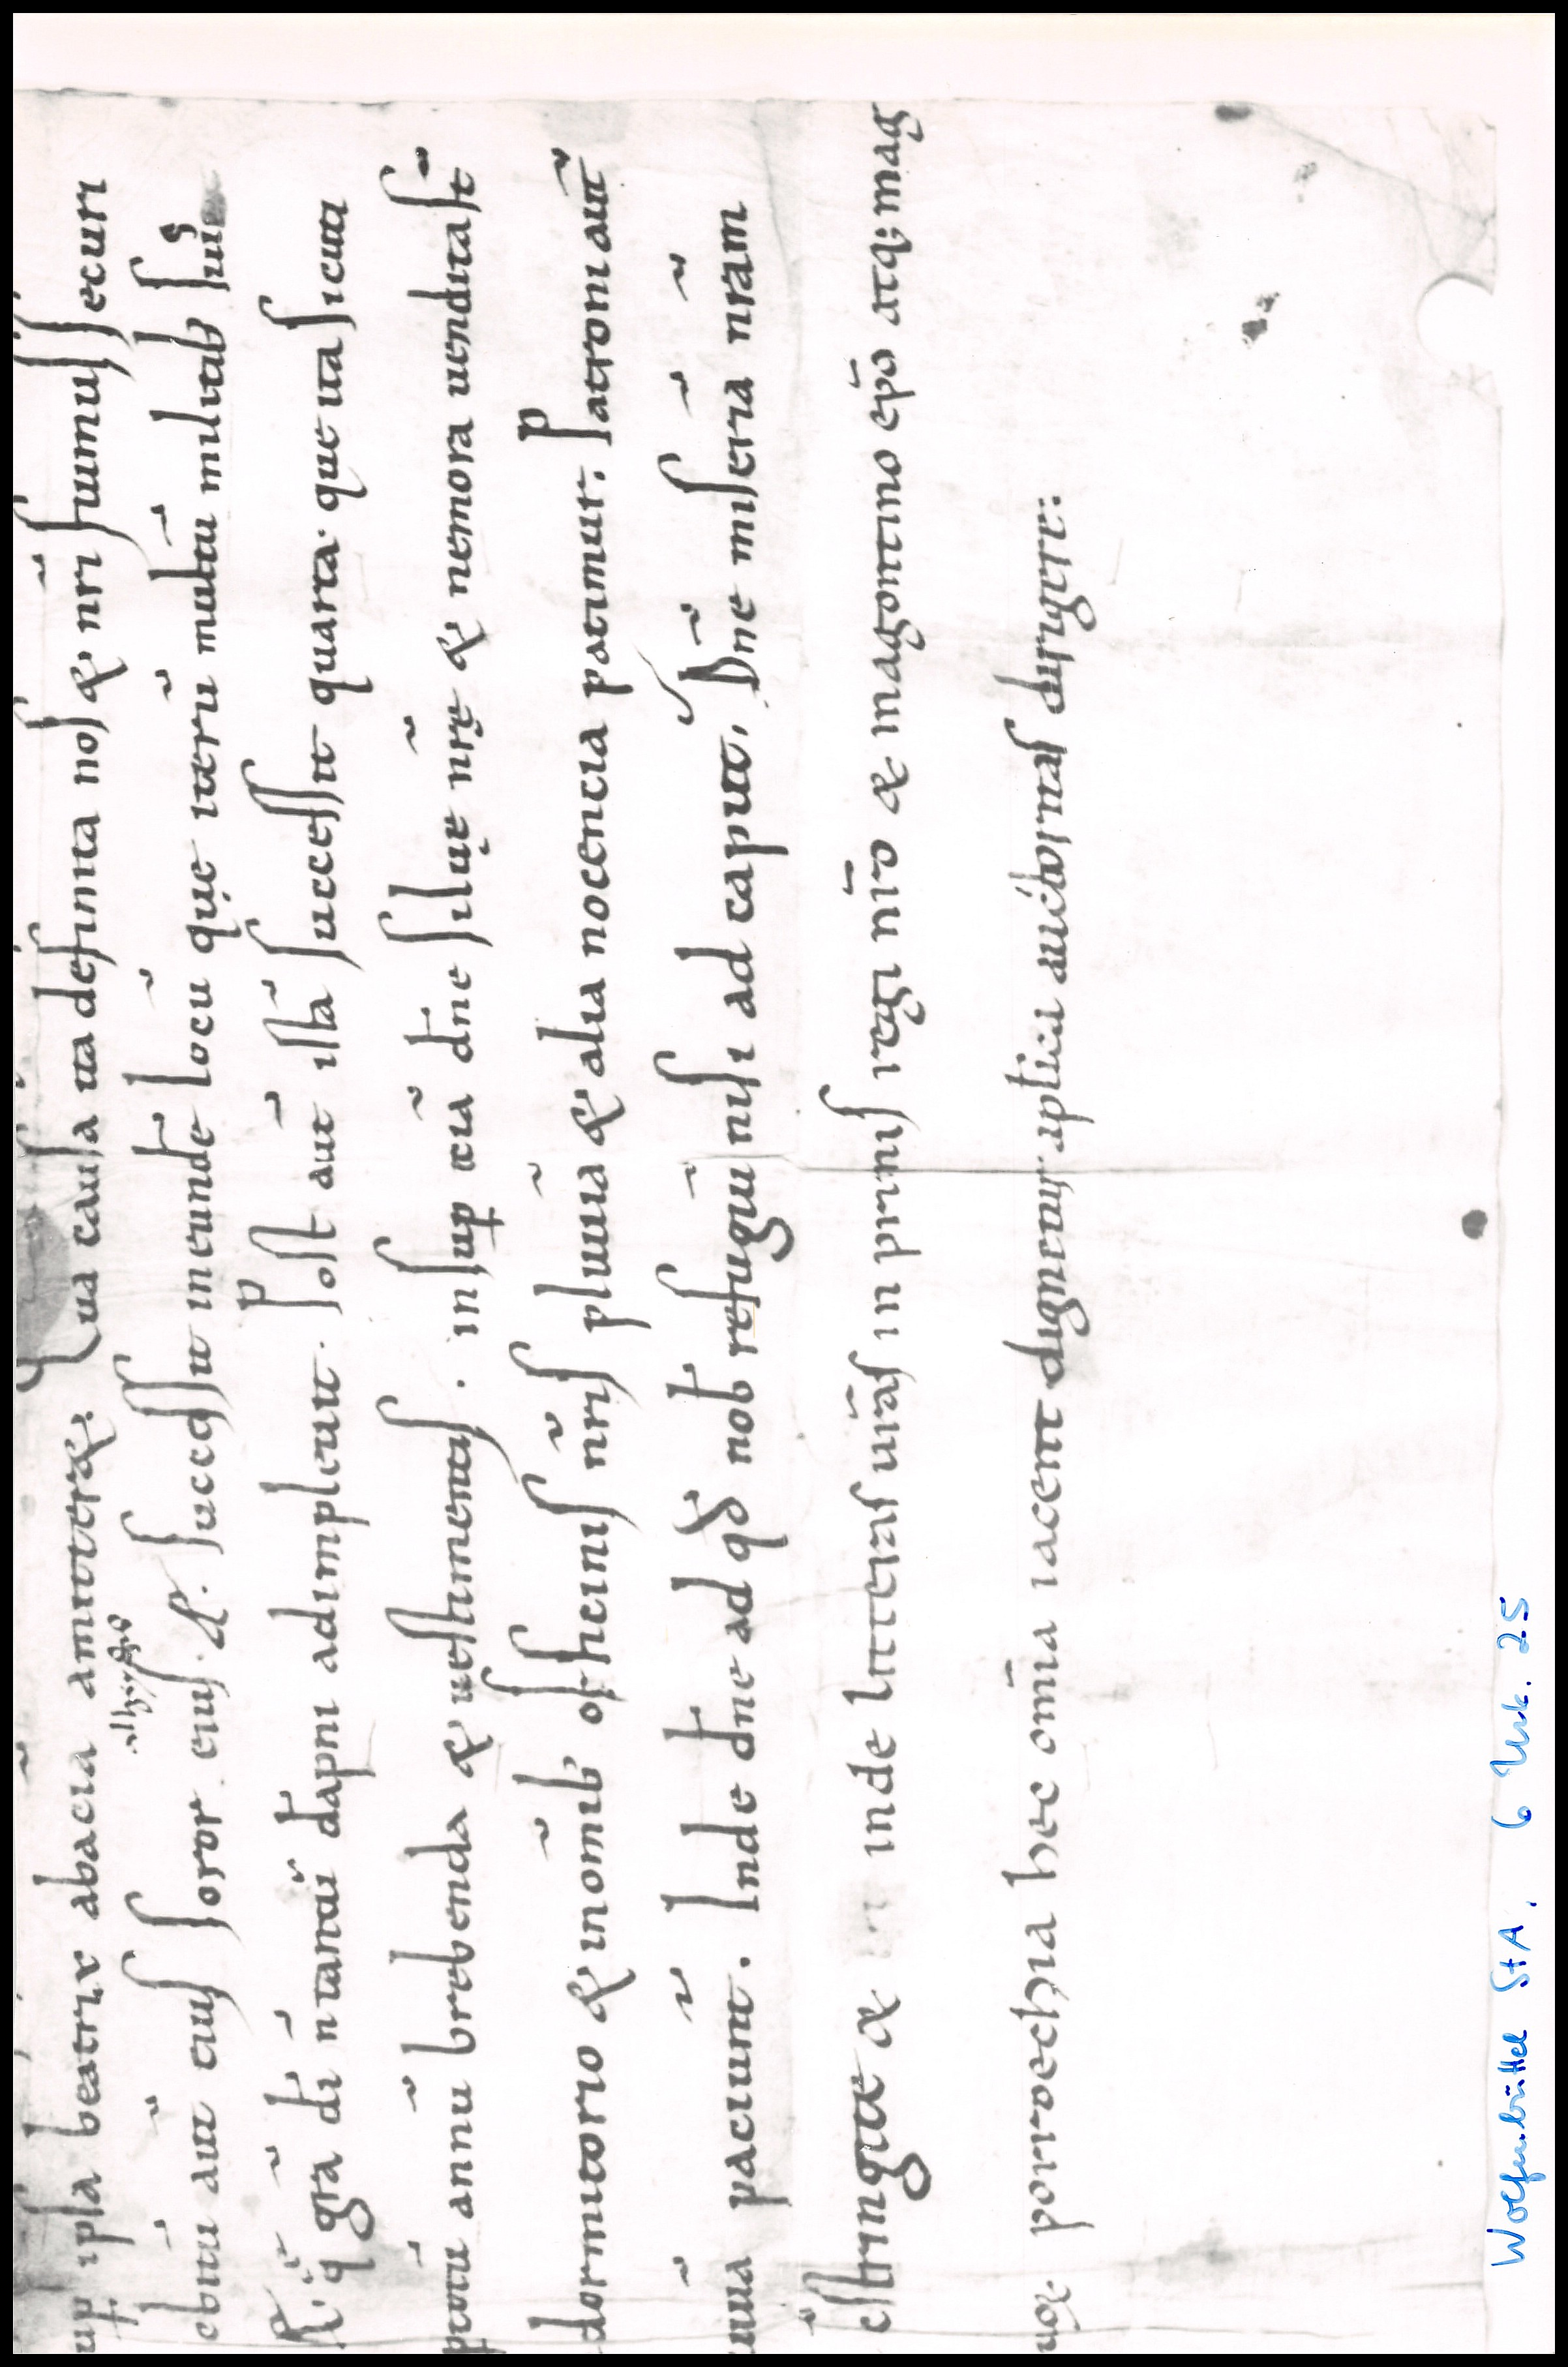 up ipsa beatrix abacia amitteret. Qua causa ita definita nos & nr̄i fuimus securi
obitū aūt eius soror eius .A. successit in eunde locū quę iterū multū militib; suis
adheyda
q̄ gr̄a dī n tantū dāpni adimpleuit. Post aūt illā successit quarta. que ita sicuti
totū annū brebenda & uestimentis. insup etiā dn̄e siluę nr̄ę & nemora uendita st̄
dormitorio & in om̄ib; officinis nr̄is pluuiā & alia nocencia patimur. Patroni aūt
paciunt̄. Inde dn̄e ad q̄d nob̄ refugiū nisi ad caput. Dn̄e miseriā nr̄am
& inde litteras ur̄as in primis regi nr̄o & magontino ep̄o atq; mag
porroechia hec om̄ia iacent dignetur aplica auctoritas dirigere:
Wolfenbüttel StA, 6 Urk. 25